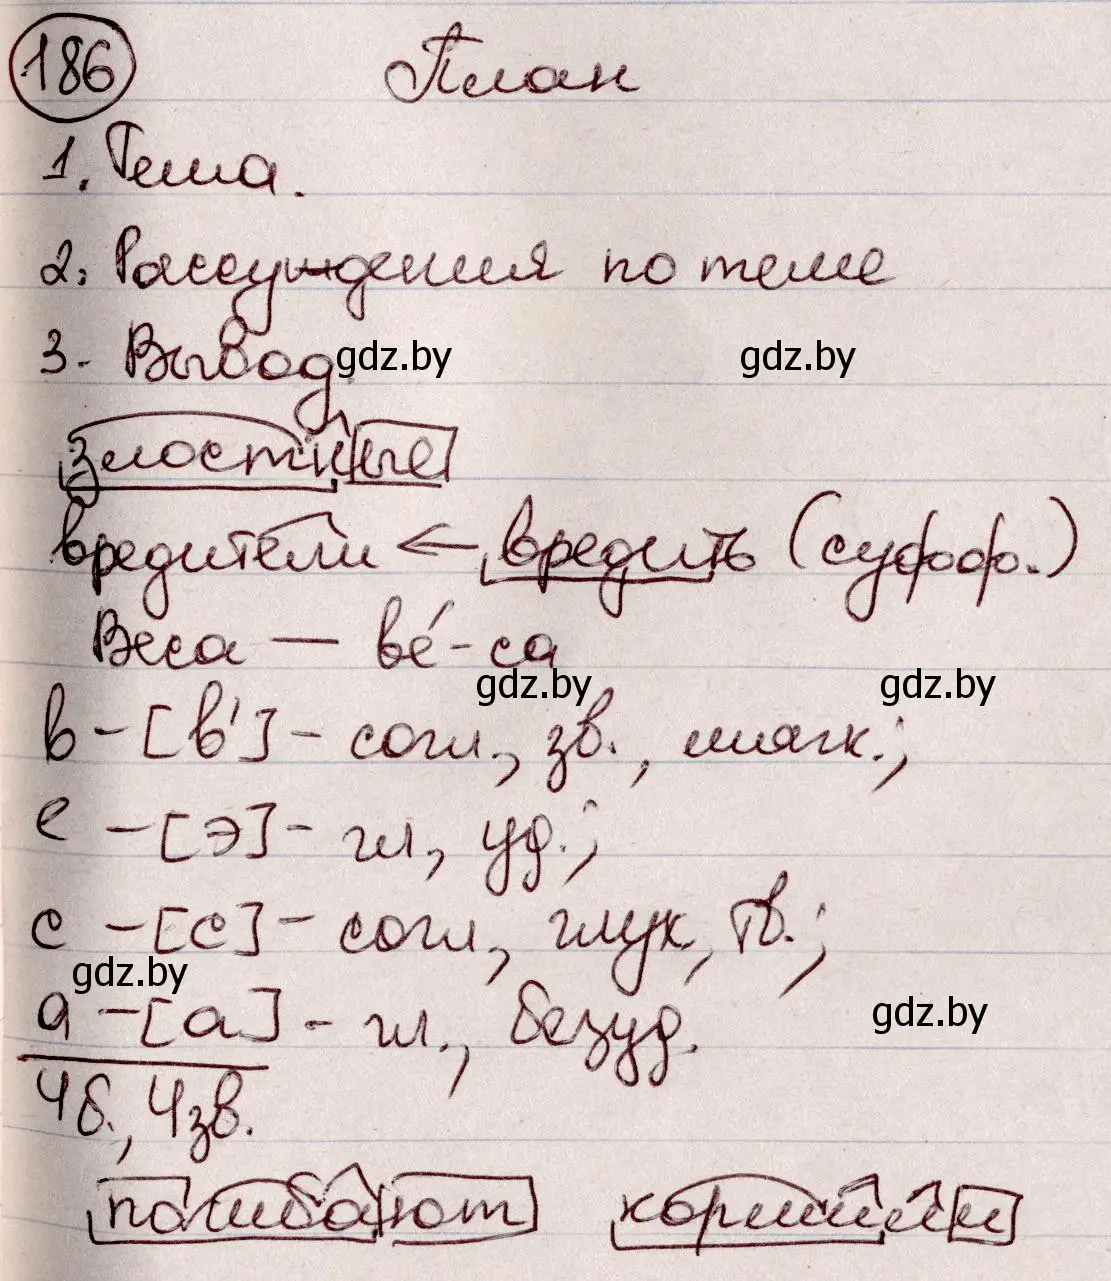 186 План
1. Тема.
2. Рассуждения по теме
3. Вывод.
gdz.by gdz.by
злостные
вредители ← вредить (суфф.)
Веса — ве́-са
gdz.by gdz.by
в – [в'] – согл., зв., мягк.;
е – [э] – гл, уд.;
с – [с] – согл, глух, тв.;
gdz.by
а – [а] – гл., безуд.
gdz.by
4б., 4зв.
погибают кормили